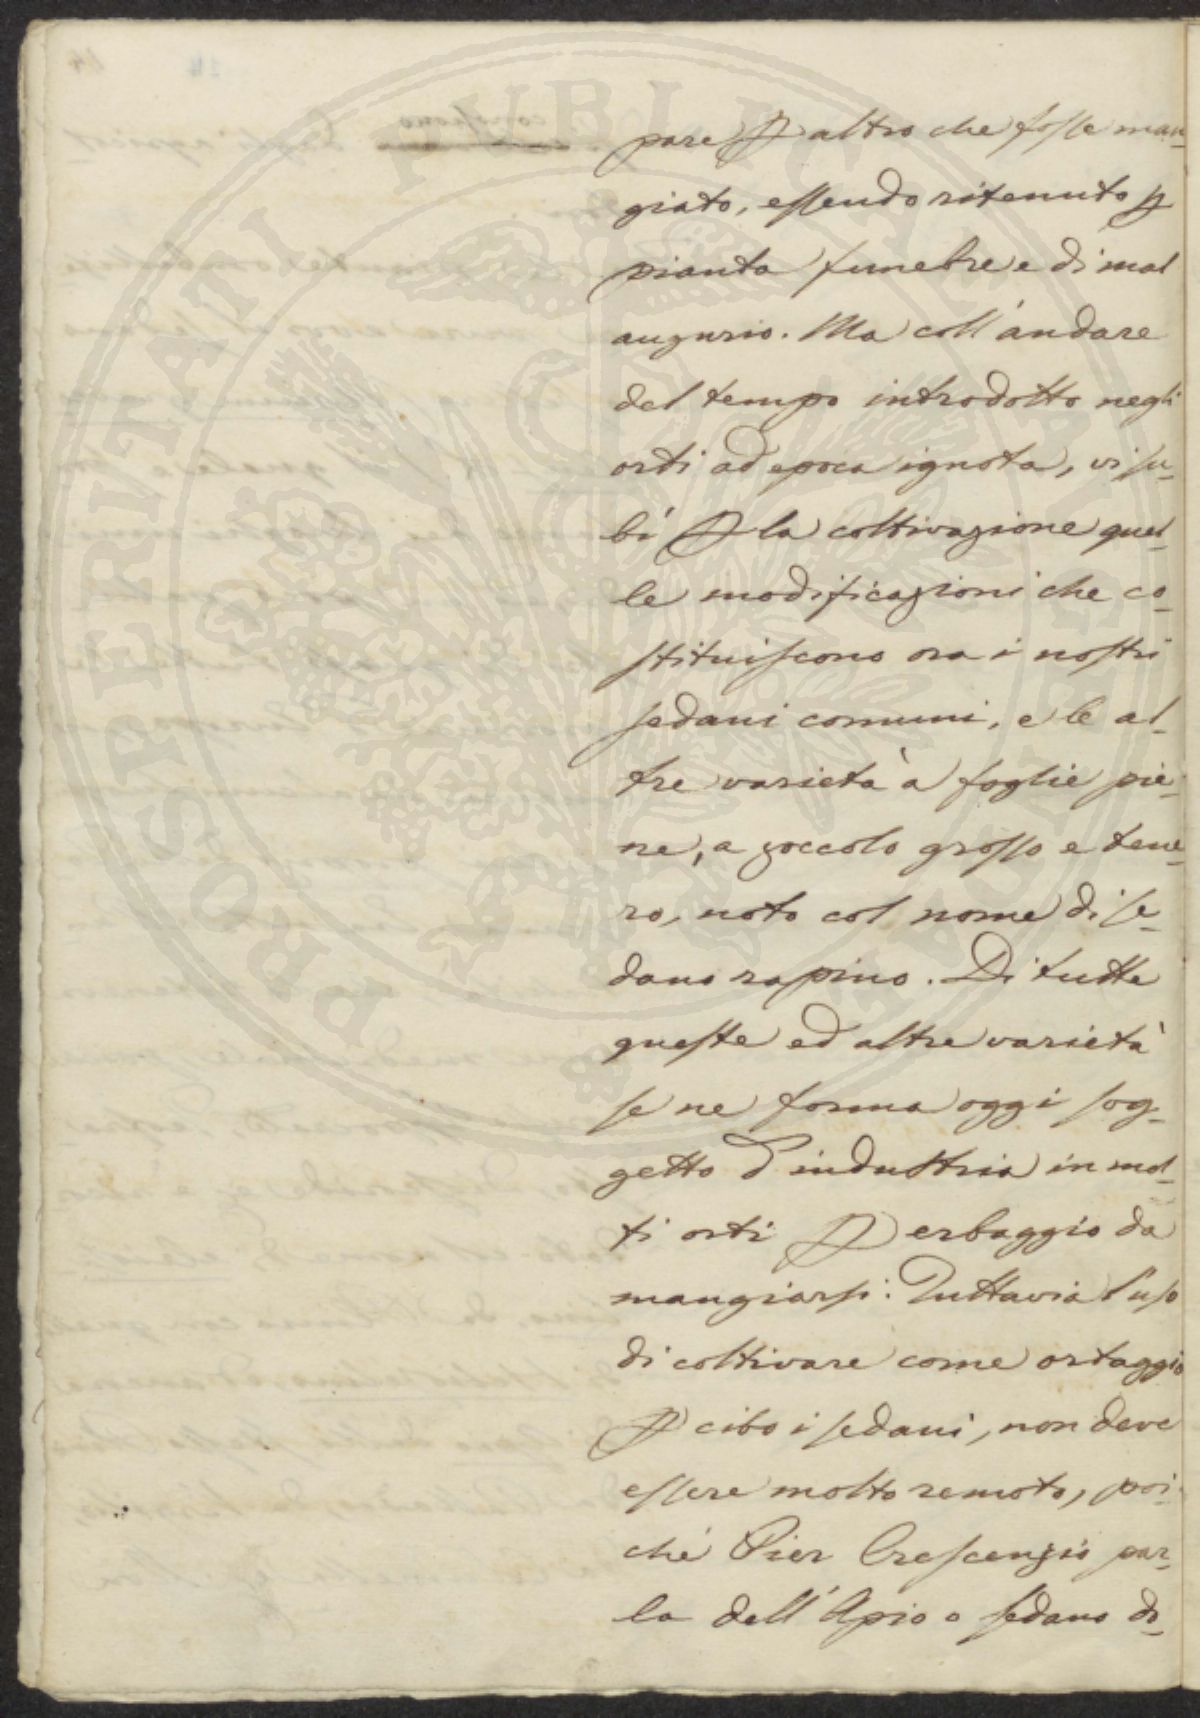 pare p altro che fosse man-
giato, essendo ritenuto p
pianta funebre e di mal
augurio. Ma coll'andare
del tempo introdotto negli
orti ad epoca ignota, vi su-
bì p la coltivazione quel-
le modificazioni che co-
stituiscono ora i nostri
sedani comuni, e le al-
tre varietà a foglie pie-
ne, a zoccolo grosso e tene-
ro, noto col nome di se-
dano rapino. Di tutte
queste ed altre varietà
se ne forma oggi sog-
getto d'industria in mol-
ti orti p erbaggio da
mangiarsi: Tuttavia l'uso
di coltivare come ortaggio
p cibo i sedani, non deve
essere molto remoto, poi-
ché Pier Crescenzio par-
la dell'Apio o sedano di-
PROSPERITATI PUBLICAE